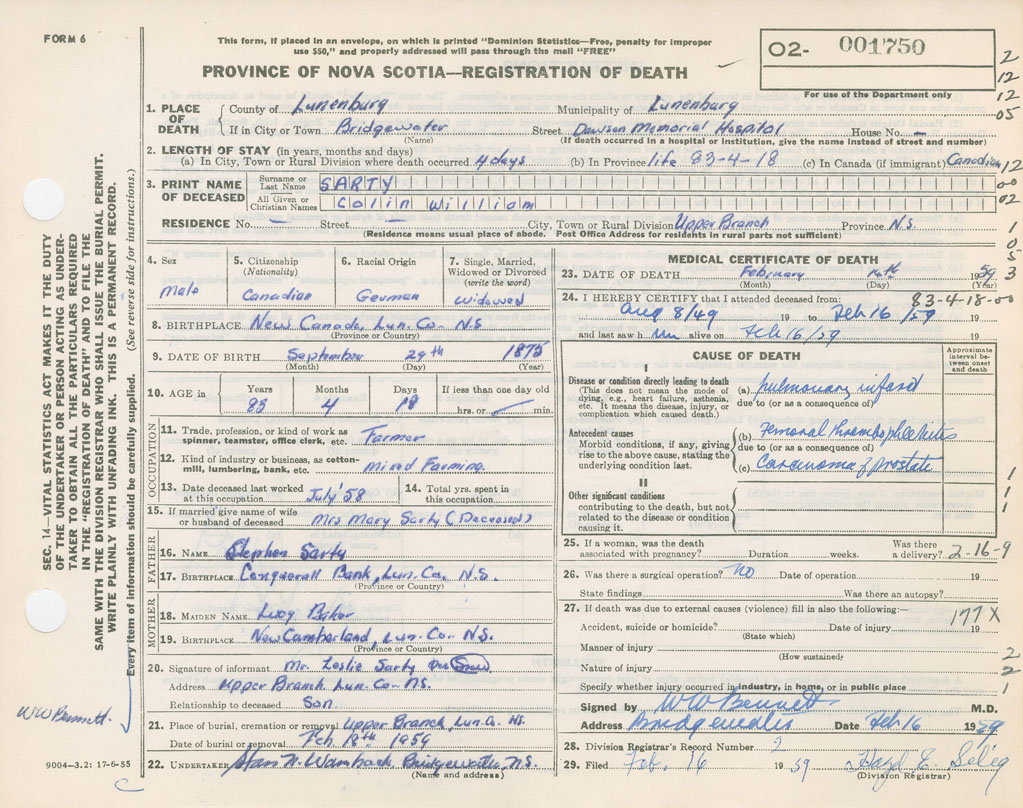 FORM 6
This form, if placed in an envelope, on which is printed "Dominion Statistics—Free, penalty for improper
use $50," and properly addressed will pass through the mail "FREE"
PROVINCE OF NOVA SCOTIA—REGISTRATION OF DEATH
O2- 001750
For use of the Department only
2
12
12
05
1. PLACE OF DEATH { County of Lunenburg Municipality of Lunenburg
If in City or Town Bridgewater Street Dawson Memorial Hospital House No. —
(Name) (If death occurred in a hospital or institution, give the name instead of street and number)
2. LENGTH OF STAY (in years, months and days)
(a) In City, Town or Rural Division where death occurred 4 days (b) In Province life 83-4-18 (c) In Canada (if immigrant) Canadian
12
00
02
3. PRINT NAME OF DECEASED
Surname or Last Name SARTY
All Given or Christian Names Colin William
RESIDENCE No. — Street — City, Town or Rural Division Upper Branch Province N.S.
(Residence means usual place of abode. Post Office Address for residents in rural parts not sufficient)
1
0
5
3
4. Sex
Male
5. Citizenship
(Nationality)
Canadian
6. Racial Origin
German
7. Single, Married,
Widowed or Divorced
(write the word)
Widowed
8. BIRTHPLACE New Canada, Lun. Co. N.S
(Province or Country)
9. DATE OF BIRTH September 29th 1875
(Month) (Day) (Year)
10. AGE in
Years 83
Months 4
Days 18
If less than one day old
hrs. or min.
OCCUPATION
11. Trade, profession, or kind of work as
spinner, teamster, office clerk, etc. Farmer
12. Kind of industry or business, as cotton-
mill, lumbering, bank, etc. Mixed Farming
13. Date deceased last worked
at this occupation July '58
14. Total yrs. spent in
this occupation
15. If married give name of wife
or husband of deceased Mrs Mary Sarty (Deceased)
FATHER
16. NAME Stephen Sarty
17. BIRTHPLACE Conquerall Bank, Lun. Co. N.S.
(Province or Country)
MOTHER
18. MAIDEN NAME Lucy Baker
19. BIRTHPLACE New Cumberland, Lun. Co. N.S.
(Province or Country)
20. Signature of informant Mr. Leslie Sarty
Address Upper Branch Lun. Co. N.S.
Relationship to deceased Son
21. Place of burial, cremation or removal Upper Branch, Lun. Co. NS.
Date of burial or removal Feb 18th 1959
22. UNDERTAKER N. Wambach Bridgewater, N.S.
(Name and address)
MEDICAL CERTIFICATE OF DEATH
23. DATE OF DEATH February 16th 1959
(Month) (Day) (Year)
83-4-18-00
24. I HEREBY CERTIFY that I attended deceased from:
Aug 8/49 19 to Feb 16/59 19
and last saw h im alive on Feb 16/59 19
CAUSE OF DEATH
Approximate
interval be-
tween onset
and death
I
Disease or condition directly leading to death
(This does not mean the mode of
dying, e.g., heart failure, asthenia,
etc. It means the disease, injury, or
complication which caused death.)
(a) pulmonary infarct
due to (or as a consequence of)
Antecedent causes
Morbid conditions, if any, giving
rise to the above cause, stating the
underlying condition last.
(b) Femoral thrombophlebitis
due to (or as a consequence of)
(c) Carcinoma of prostate
II
Other significant conditions
contributing to the death, but not
related to the disease or condition
causing it.
1
1
1
25. If a woman, was the death
associated with pregnancy? Duration weeks. Was there
a delivery? 2-16-9
26. Was there a surgical operation? No Date of operation 19
State findings Was there an autopsy?
27. If death was due to external causes (violence) fill in also the following:—
177X
Accident, suicide or homicide? Date of injury 19
(State which)
Manner of injury
2
(How sustained)
Nature of injury
2
Specify whether injury occurred in industry, in home, or in public place
1
Signed by W W Bennett M.D.
Address Bridgewater Date Feb 16 1959
28. Division Registrar's Record Number 7
29. Filed Feb. 16 1959 Hazel E. Selig
(Division Registrar)
SEC. 14—VITAL STATISTICS ACT MAKES IT THE DUTY
OF THE UNDERTAKER OR PERSON ACTING AS UNDER-
TAKER TO OBTAIN ALL THE PARTICULARS REQUIRED
IN THE "REGISTRATION OF DEATH" AND TO FILE THE
SAME WITH THE DIVISION REGISTRAR WHO SHALL ISSUE THE BURIAL PERMIT.
WRITE PLAINLY WITH UNFADING INK. THIS IS A PERMANENT RECORD.
Every item of information should be carefully supplied. (See reverse side for instructions.)
W W Bennett.
9004—3.2: 17-6-55